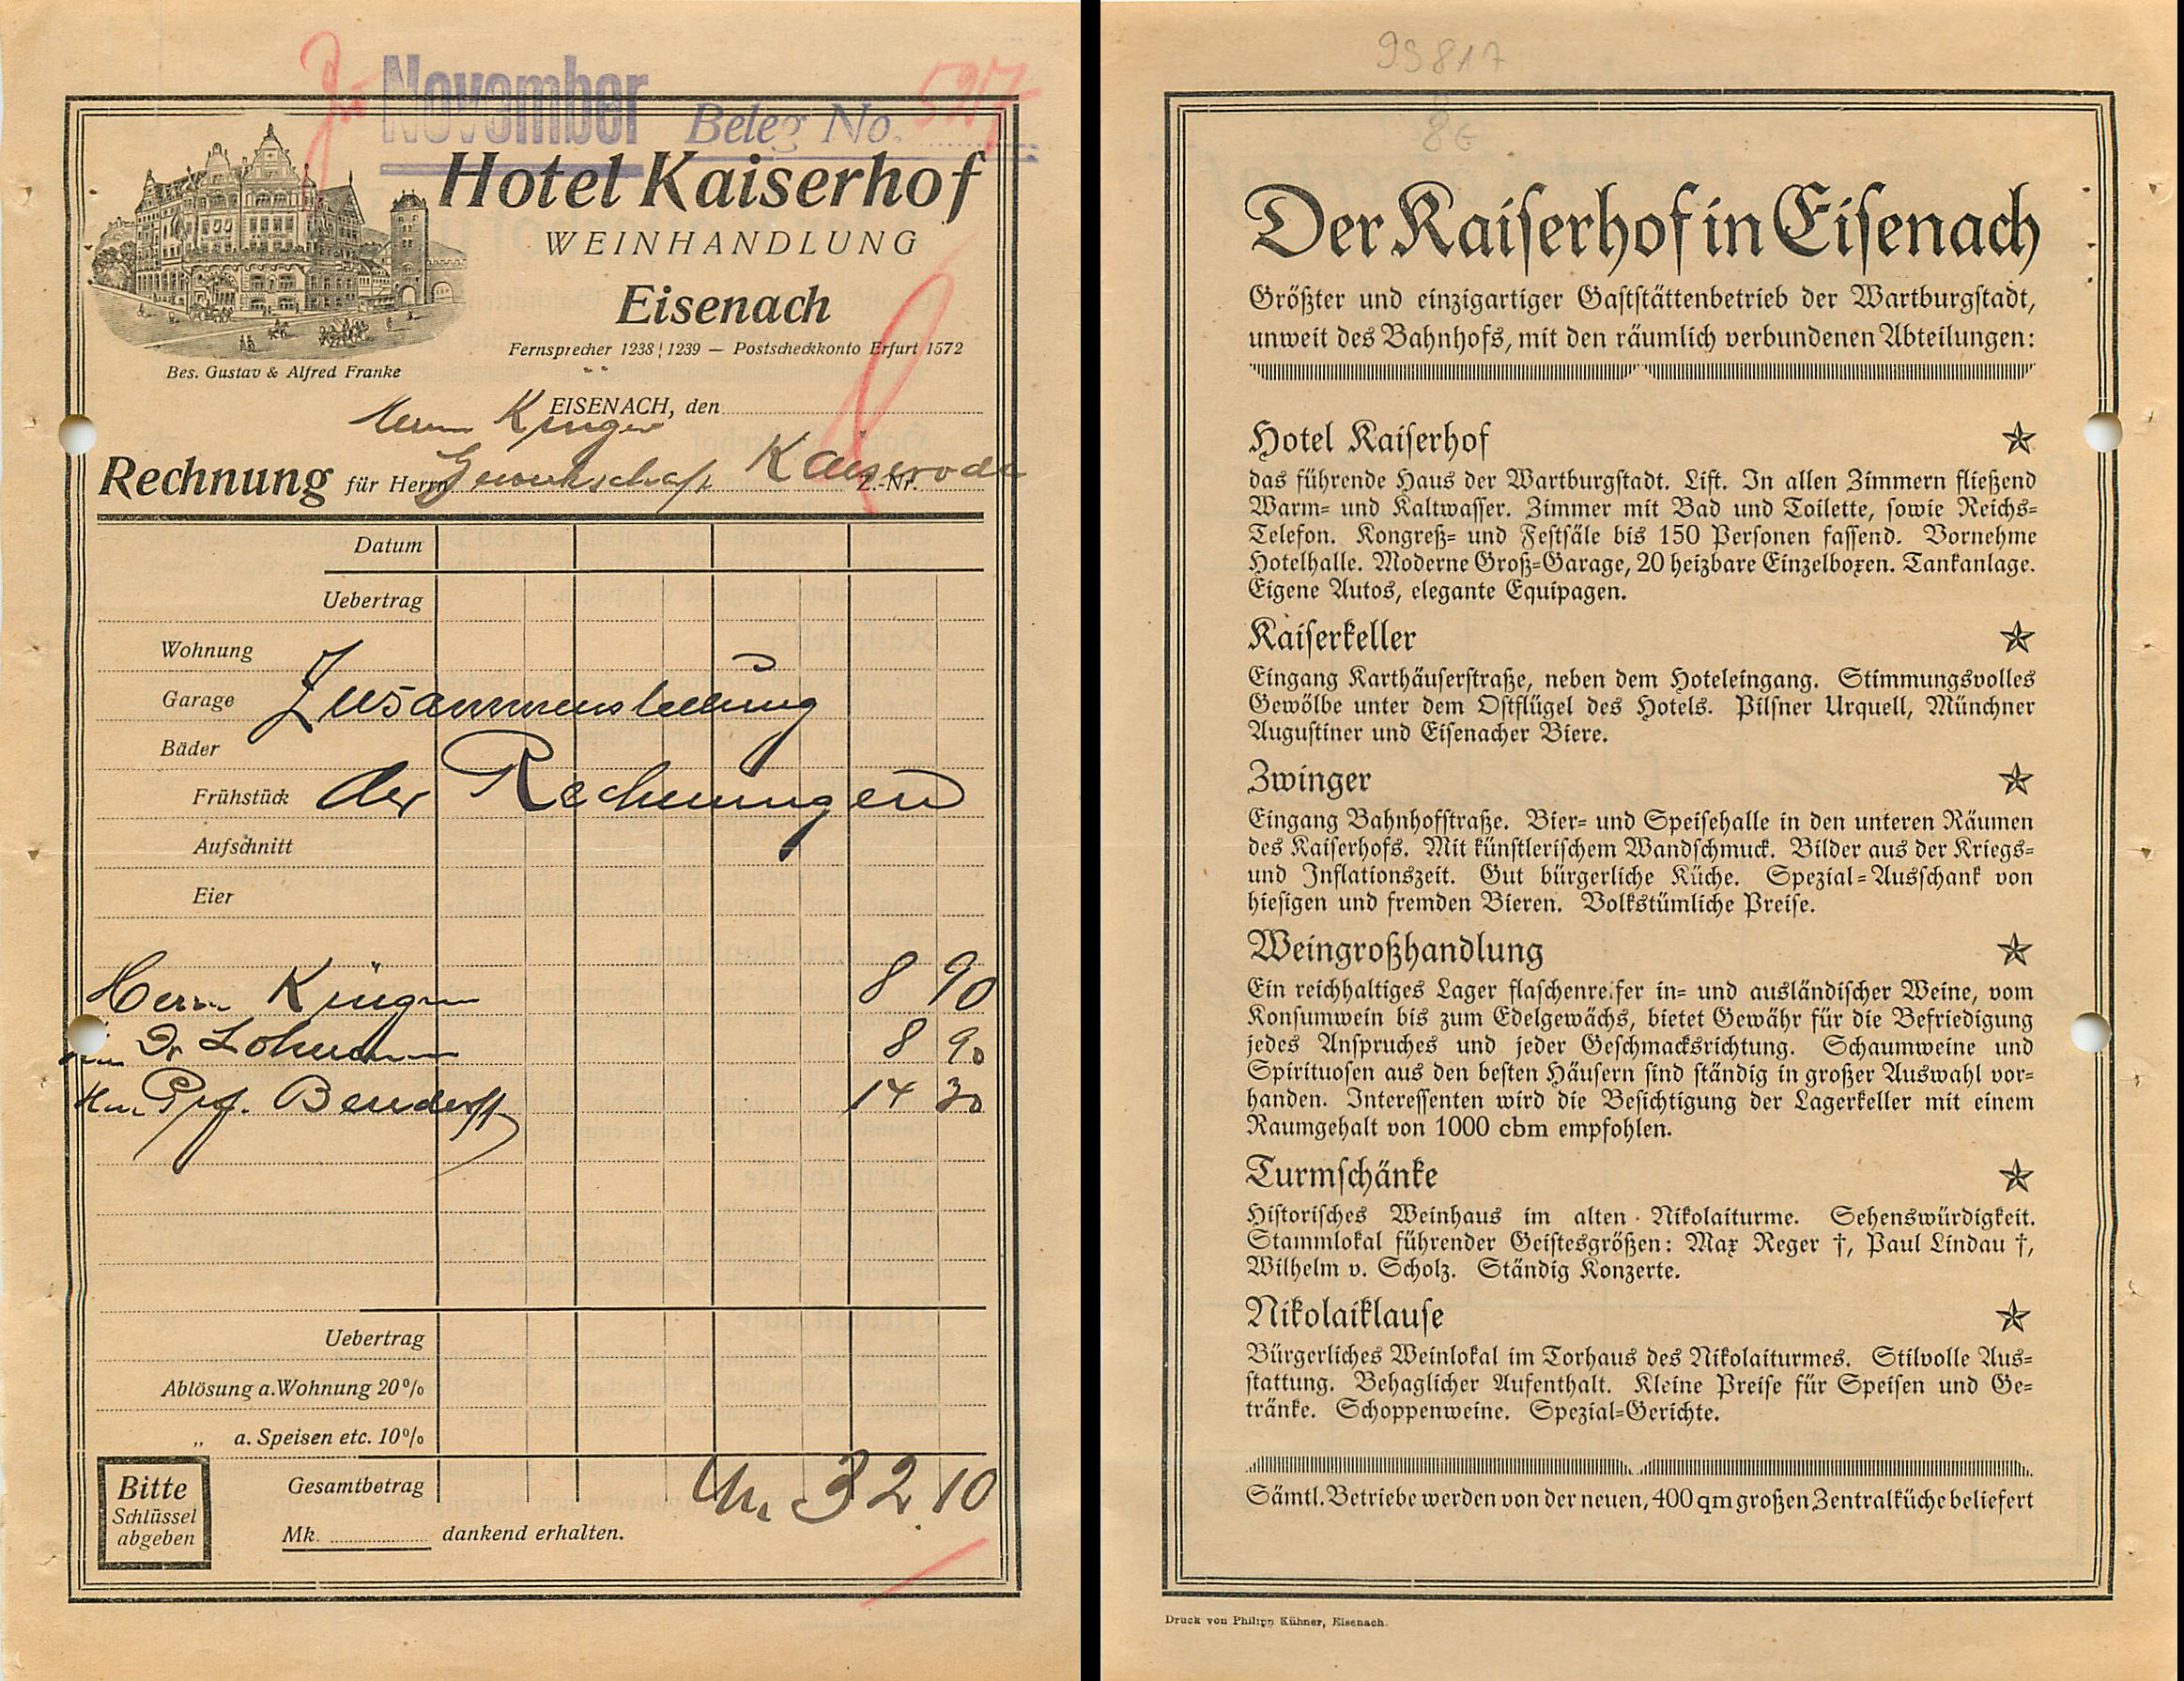 Zu November Beleg No. 527
Hotel Kaiserhof
WEINHANDLUNG
Eisenach
Fernsprecher 1238 / 1239 — Postscheckkonto Erfurt 1572
Bes. Gustav & Alfred Franke
EISENACH, den
Herrn Krüger
Rechnung für Herrn Gewerkschaft Kaiseroda Z.-Nr.
Datum
Uebertrag
Wohnung
Garage Zusammenstellung
Bäder
Frühstück der Rechnungen
Aufschnitt
Eier
Herrn 8 90
Dr Lohmann 8 90
Hrn Prof. Benderff 14 30
Uebertrag
Ablösung a. Wohnung 20%
„ a. Speisen etc. 10%
Gesamtbetrag M. 32.10
Mk. dankend erhalten.
Bitte
Schlüssel
abgeben
93817
8 €
Der Kaiſerhof in Eiſenach
Größter und einzigartiger Gaſtſtättenbetrieb der Wartburgſtadt,
unweit des Bahnhofs, mit den räumlich verbundenen Abteilungen:
Hotel Kaiſerhof
das führende Haus der Wartburgſtadt. Lift. In allen Zimmern fließend
Warm= und Kaltwaſſer. Zimmer mit Bad und Toilette, ſowie Reichs=
Telefon. Kongreß= und Feſtſäle bis 150 Perſonen faſſend. Vornehme
Hotelhalle. Moderne Groß=Garage, 20 heizbare Einzelboxen. Tankanlage.
Eigene Autos, elegante Equipagen.
Kaiſerkeller
Eingang Karthäuſerſtraße, neben dem Hoteleingang. Stimmungsvolles
Gewölbe unter dem Oſtflügel des Hotels. Pilſner Urquell, Münchner
Auguſtiner und Eiſenacher Biere.
Zwinger
Eingang Bahnhofſtraße. Bier= und Speiſehalle in den unteren Räumen
des Kaiſerhofs. Mit künſtleriſchem Wandſchmuck. Bilder aus der Kriegs=
und Inflationszeit. Gut bürgerliche Küche. Spezial=Ausſchank von
hieſigen und fremden Bieren. Volkstümliche Preiſe.
Weingroßhandlung
Ein reichhaltiges Lager flaſchenreifer in= und ausländiſcher Weine, vom
Konſumwein bis zum Edelgewächs, bietet Gewähr für die Befriedigung
jedes Anſpruches und jeder Geſchmacksrichtung. Schaumweine und
Spirituoſen aus den beſten Häuſern ſind ſtändig in großer Auswahl vor=
handen. Intereſſenten wird die Beſichtigung der Lagerkeller mit einem
Raumgehalt von 1000 cbm empfohlen.
Turmſchänke
Hiſtoriſches Weinhaus im alten Nikolaiturme. Sehenswürdigkeit.
Stammlokal führender Geiſtesgrößen: Max Reger †, Paul Lindau †,
Wilhelm v. Scholz. Ständig Konzerte.
Nikolaiklauſe
Bürgerliches Weinlokal im Torhaus des Nikolaiturmes. Stilvolle Aus=
ſtattung. Behaglicher Aufenthalt. Kleine Preiſe für Speiſen und Ge=
tränke. Schoppenweine. Spezial=Gerichte.
Sämtl. Betriebe werden von der neuen, 400 qm großen Zentralküche beliefert
Druck von Philipp Kühner, Eisenach.